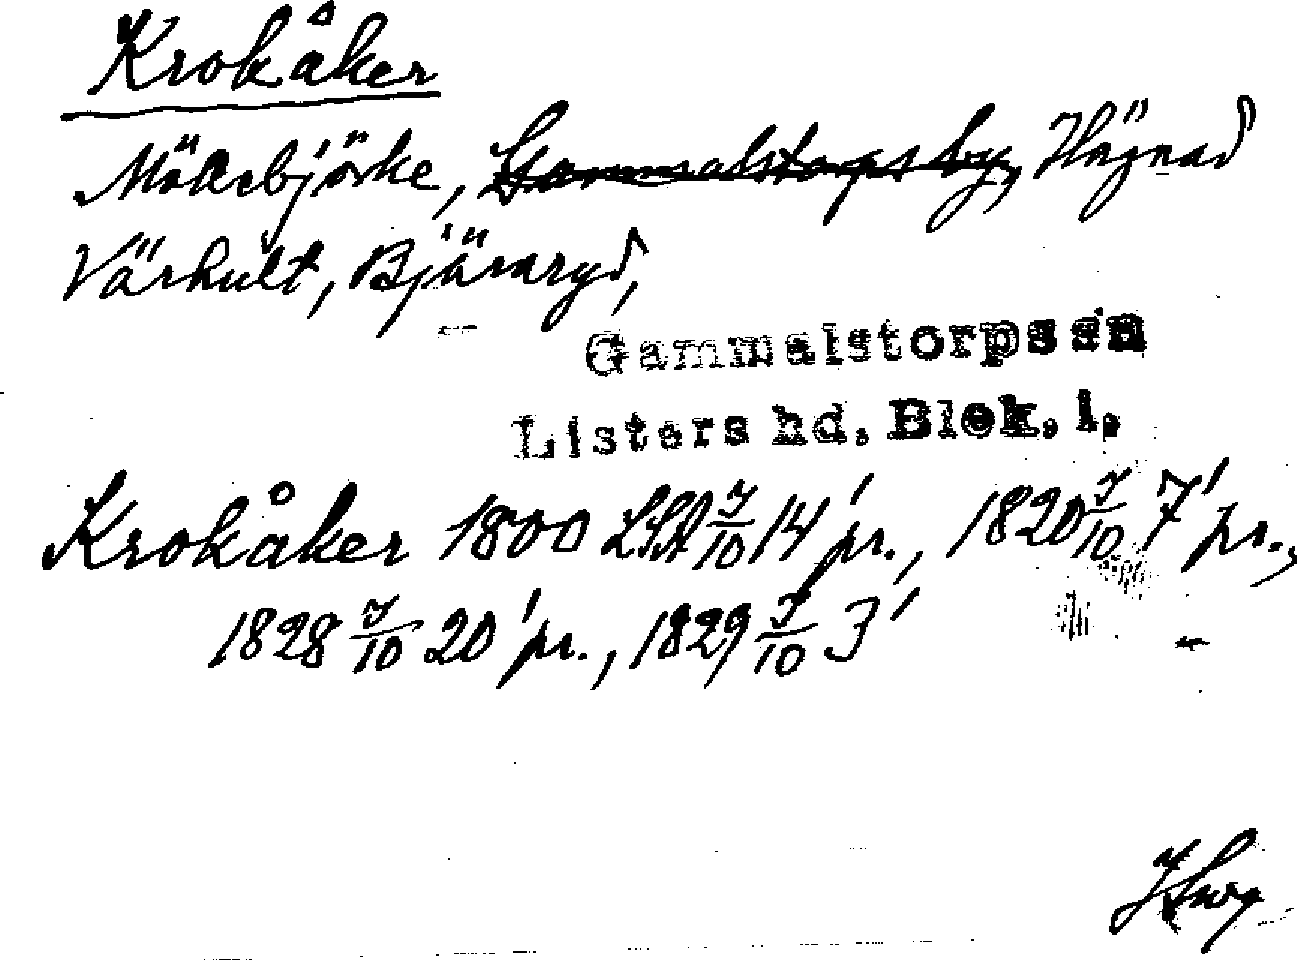 Krokåker
Mökebjörke, Gammalstorps by, Hägnad
Värhult, Bjäraryd,
Gammalstorps sn
Listers hd. Blek. l.
Krokåker 1800 LSA 7/10 14' pr., 1820 7/10 7' pr.,
1828 7/10 20' pr., 1829 7/10 3'